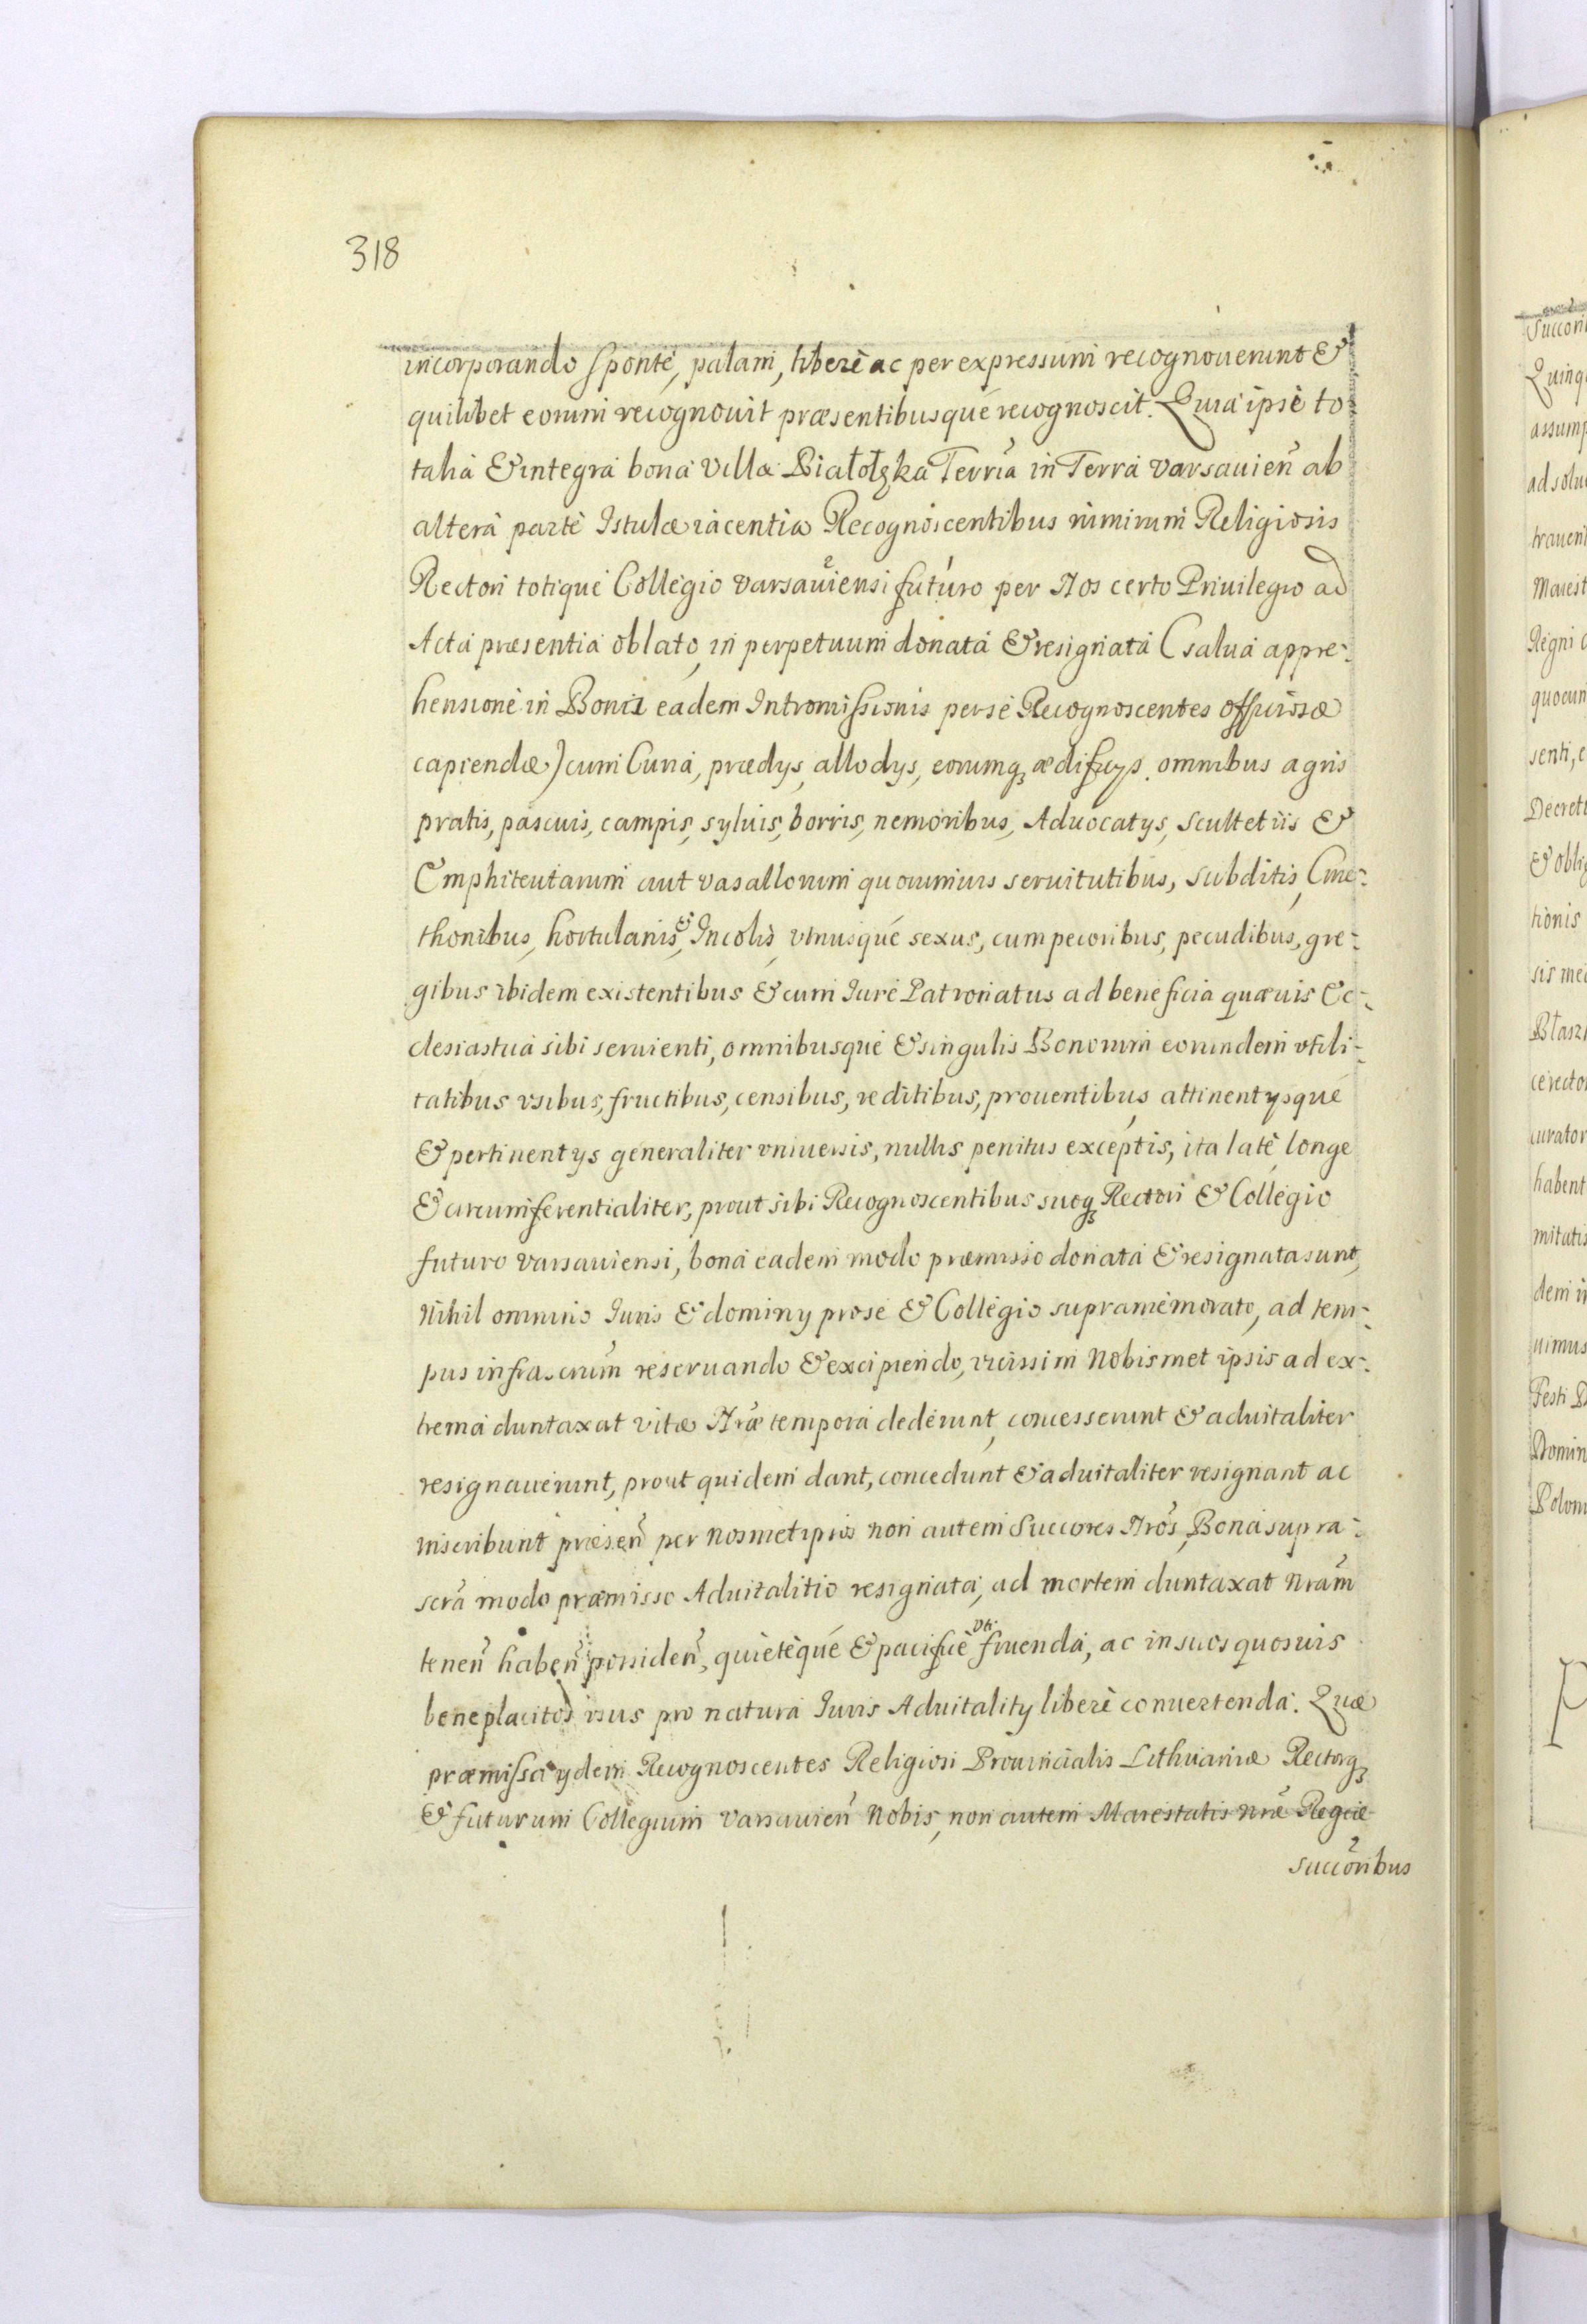 318
incorporando sponte, palam, liberè ac per expressum recognouerunt &
quilibet eorum recognouit præsentibusque recognoscit. Quia ipse to-
talia & integra bona Villæ Białołęka Terrią in Terra varsauieñ ab
altera parte Istulæ iacentia Recognoscentibus nimirum Religiosis
Rectori totique Collegio varsauiensi futuro per Nos certo Priuilegio ad
Acta præsentia oblato, in perpetuum donata & resignata (salua appre-
hensione in Bonis eadem Intromissionis per se Recognoscentes
capiendæ) cum Curia, prædys, allodys, eorumq; ædificys, omnibus agris
pratis, pascuis, campis, syluis, borris, nemoribus, Aduocatys, scultetiis &
Emphiteutarum aut vasallorum quorumuis seruitutibus, subditis, Cme-
thonibus, hortulanis, & Incolis vtriusque sexus, cum pecoribus, pecudibus, gre-
gibus ibidem existentibus & cum Iure Patronatus ad beneficia quæuis Ec-
clesiastica sibi seruienti, omnibusque & singulis Bonorum eorundem vtili-
tatibus vsibus, fructibus, censibus, reditibus, prouentibus attinentysque
& pertinentys generaliter vniuersis, nullis penitus exceptis, ita latè longe
& circumferentialiter, prout sibi Recognoscentibus suoq; Rectori & Collegio
futuro varsauiensi, bona eadem modo præmisso donata & resignata sunt,
Nihil omnino Iuris & dominy pro se & Collegio supramemorato, ad tem-
pus infrascrum reseruando & excipiendo, vicissim Nobismet ipsis ad ex-
trema duntaxat vitæ Nræ tempora dederunt, concesserunt & aduitaliter
resignauerunt, prout quidem dant, concedunt & aduitaliter resignant ac
inscribunt præseñ per nosmet ipsos non autem Succores Nros, Bona supra-
scra modo præmisso Aduitalitio resignata, ad mortem duntaxat nram
teneñ habeñ possideñ, quietèque & pacificè vti fruenda, ac in suos quosuis
beneplacitos vsus pro natura Iuris Aduitality liberè conuertenda. Quæ
præmissa ydem Recognoscentes Religiosi Prouincialis Lithuaniæ Rectorq;
& futurum Collegium Varsauieñ Nobis, non autem Maiestatis nræ Regiæ
succoribus